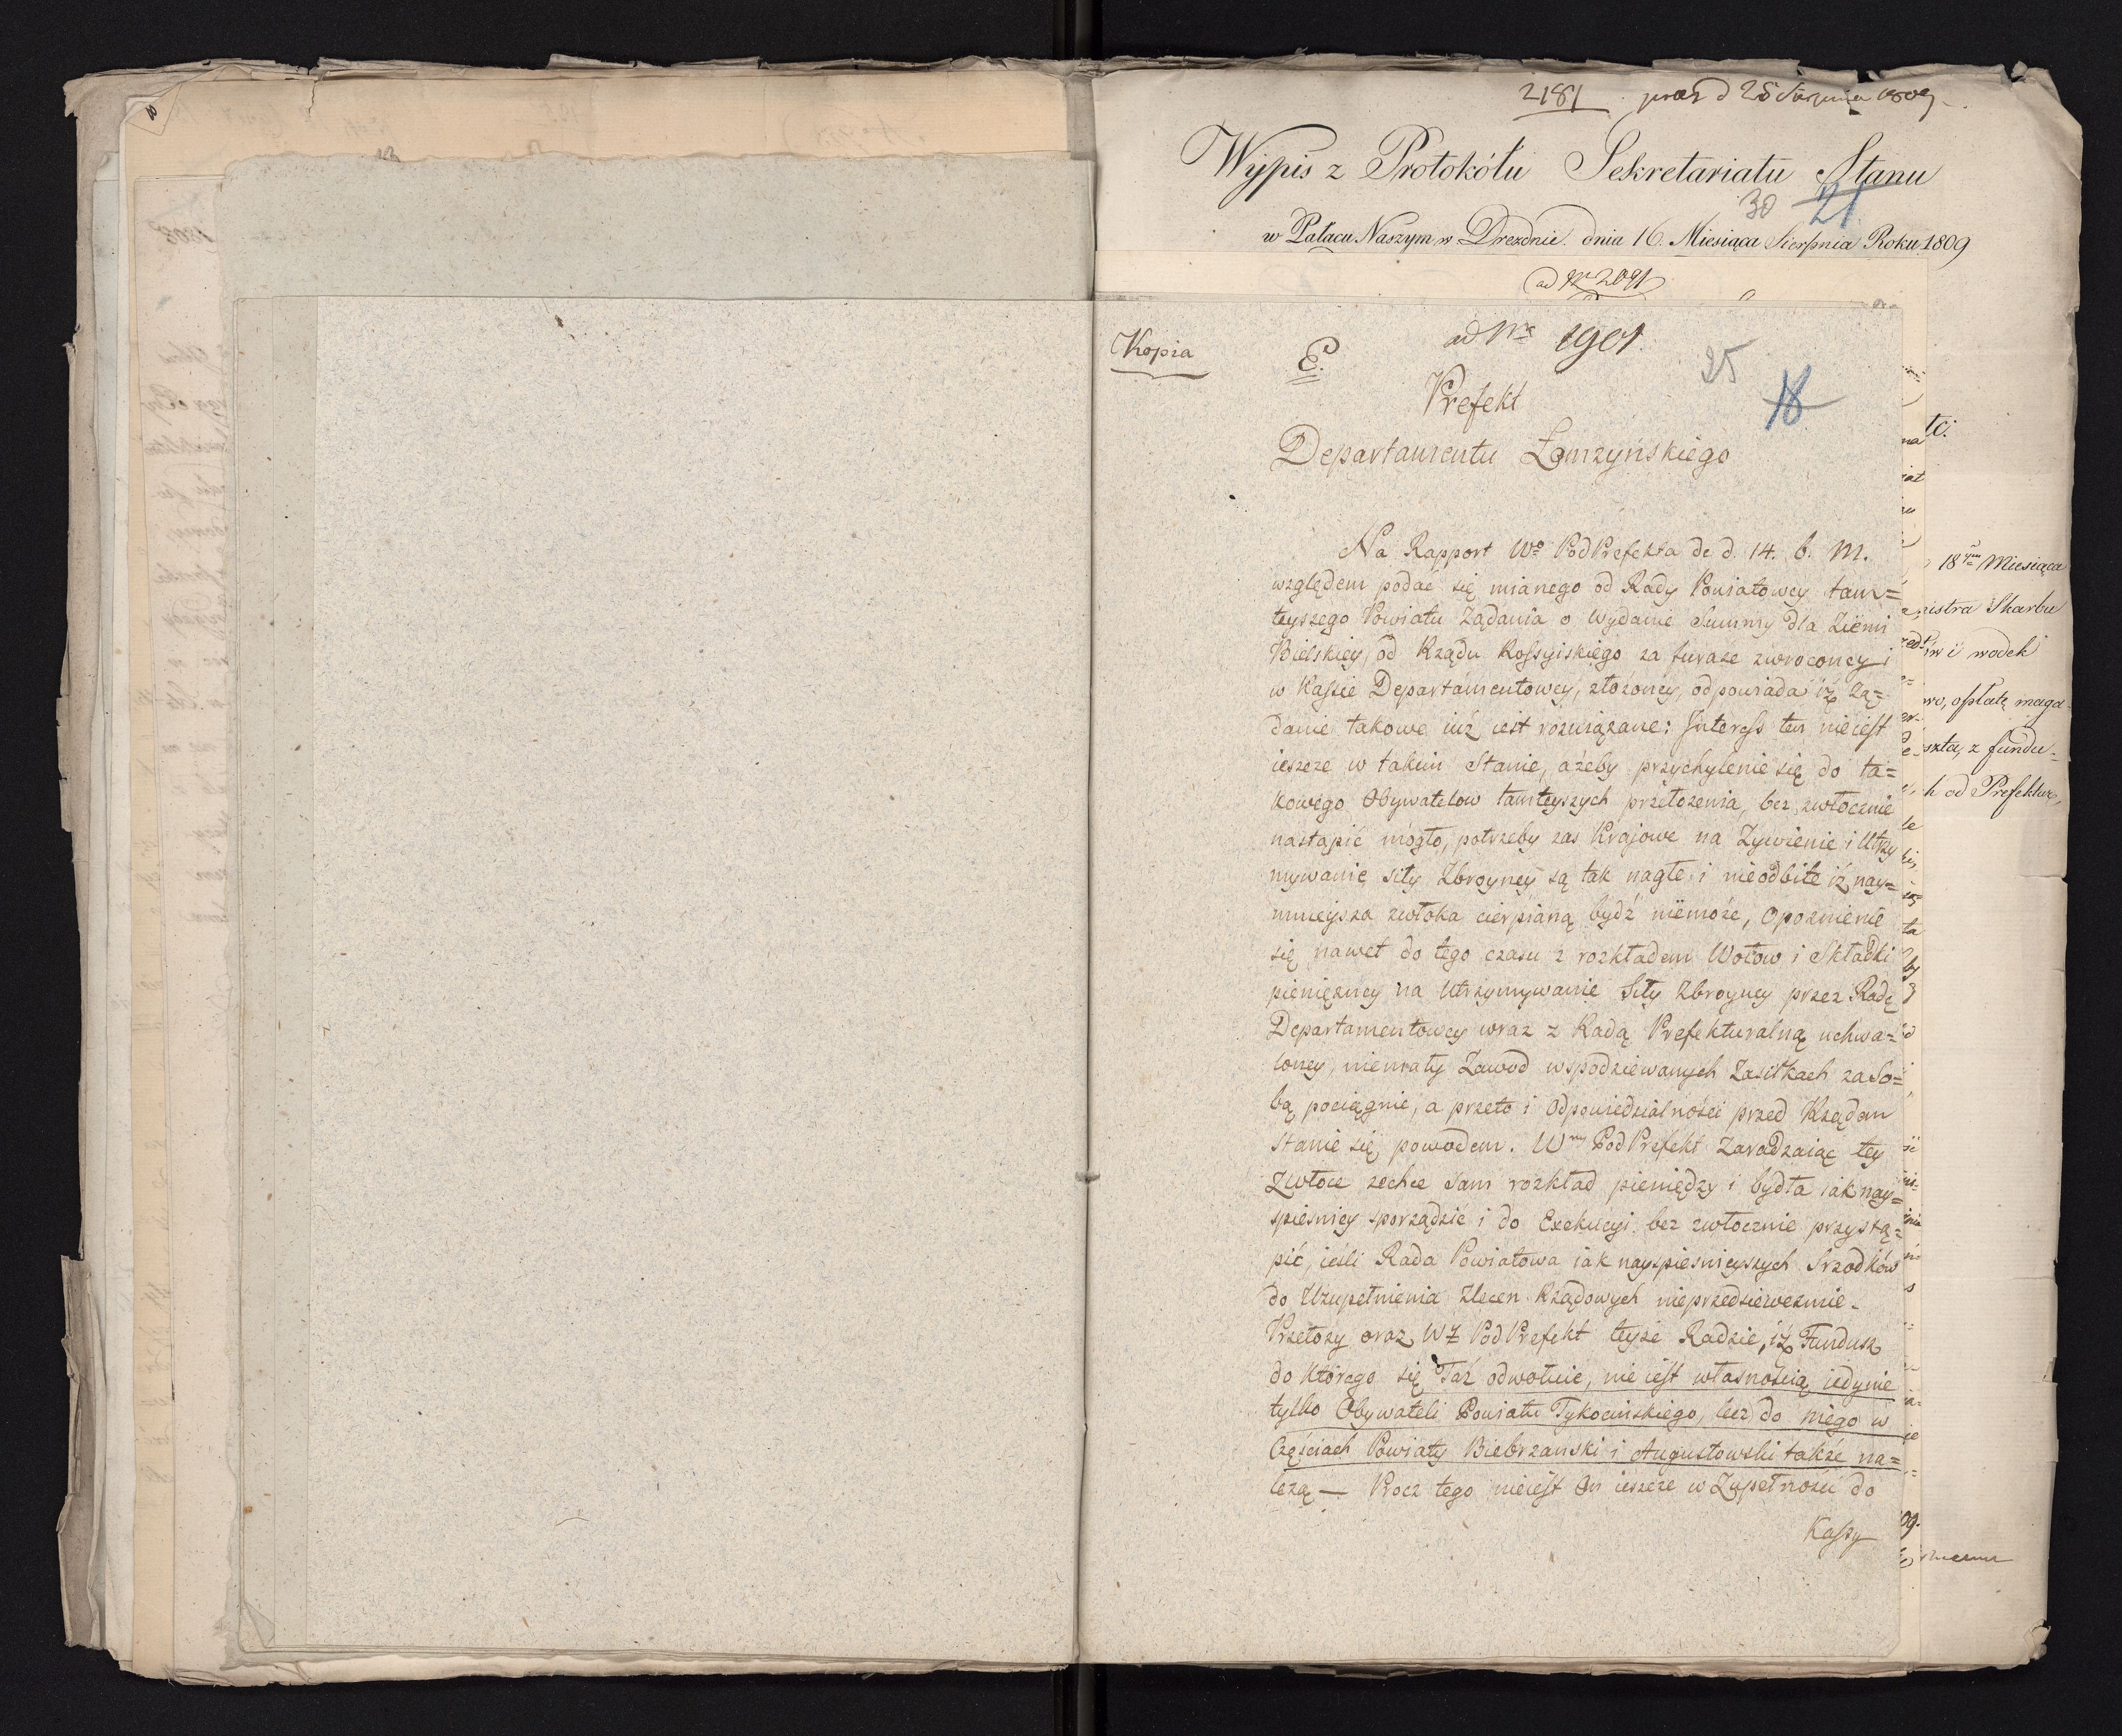 2181 prae d 25 Sierpnia 1809
Wypis z Protokółu Sekretariatu Stanu
30 21
w Pałacu Naszym w Dreznie dnia 16. Miesiąca Sierpnia Roku 1809
ad Nr 2091
Kopia
E.
ad Nr 1901.
25
18
Prefekt
Departamentu Łomżyńskiego
Na Rapport Wo PodPrefekta de d. 14. b. M.
względem podać się mianego od Rady Powiatowey tam=
teyszego Powiatu Żądania o wydanie Summy dla Ziemi
Bielskiey, od Rządu Rossyiskiego za furaże zwroconey i
w Kassie Departamentowey, złożoney, odpowiada iż Żą=
danie takowe iuż iest rozwiązane: Interess ten nieiest
ieszcze w takim Stanie, ażeby przychylenie się do ta=
kowego Obywatelow tamteyszych przełożenia, bez zwłocznie
nastąpić mogło, potrzeby zas Krajowe na Żywienie i Utrzy
mywanie siły Zbroyney są tak nagłe i nieodbite iż nay=
mnieysza zwłoka cierpianą bydź niemoże, Opoznienie
się nawet do tego czasu z rozkładem Wołow i Składki
pienięzney na Utrzymywanie Siły Zbroyney przez Radę
Departamentowey wraz z Radą Prefekturalną uchwa=
loney, niemały Zawod wspodziewanych Zasiłkach za So=
bą pociągnie, a przeto i Odpowiedzialności przed Rządem
Stanie się powodem. Wny PodPrefekt Zaradzaiąc tey
Zwłoce zechce Sam rozkład pieniędzy i bydła iak nay=
spiesniey sporządzic i do Exekucyi bez zwłocznie przystą=
pić, ieśli Rada Powiatowa iak nayspiesnieyszych Srzodków
do Uzupełnienia Zlecen Rządowych nieprzedsiewezmie.
Przełoży oraz WŻ PodPrefekt teyże Radzie, iż Fundusz
do Którego się Taż odwołuie, nie iest własnością iedynie
tylko Obywateli Powiatu Tykocinskiego, lecz do niego w
Częściach Powiaty Biebrzanski i Augustowski także na=
leżą — Procz tego nieiest On ieszcze w Zupełności do
Kassy
18 Miesiąca
nistra Skarbu
i wodek
opłatę maga
z fundu=
h od Prefektur,